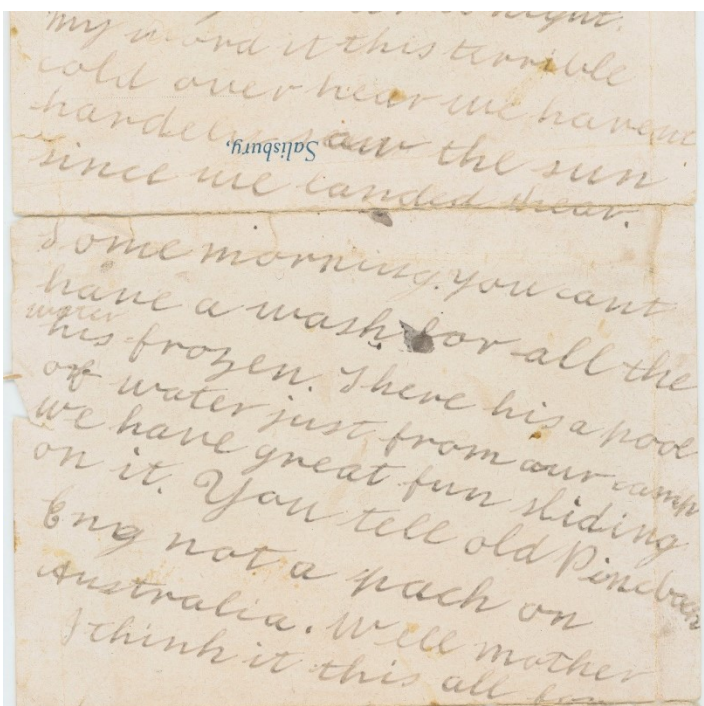 night.
my word it this terrible
cold over hear we havent
hardely saw the sun
Salisbury,
since we landed hear.
Some morning. you cant
have a wash for all the
water
his frozen. There his a pool
of water just from our camp
we have great fun sliding
on it. You tell old
Eng not a pach on
Australia. Well mother
I think it this all for